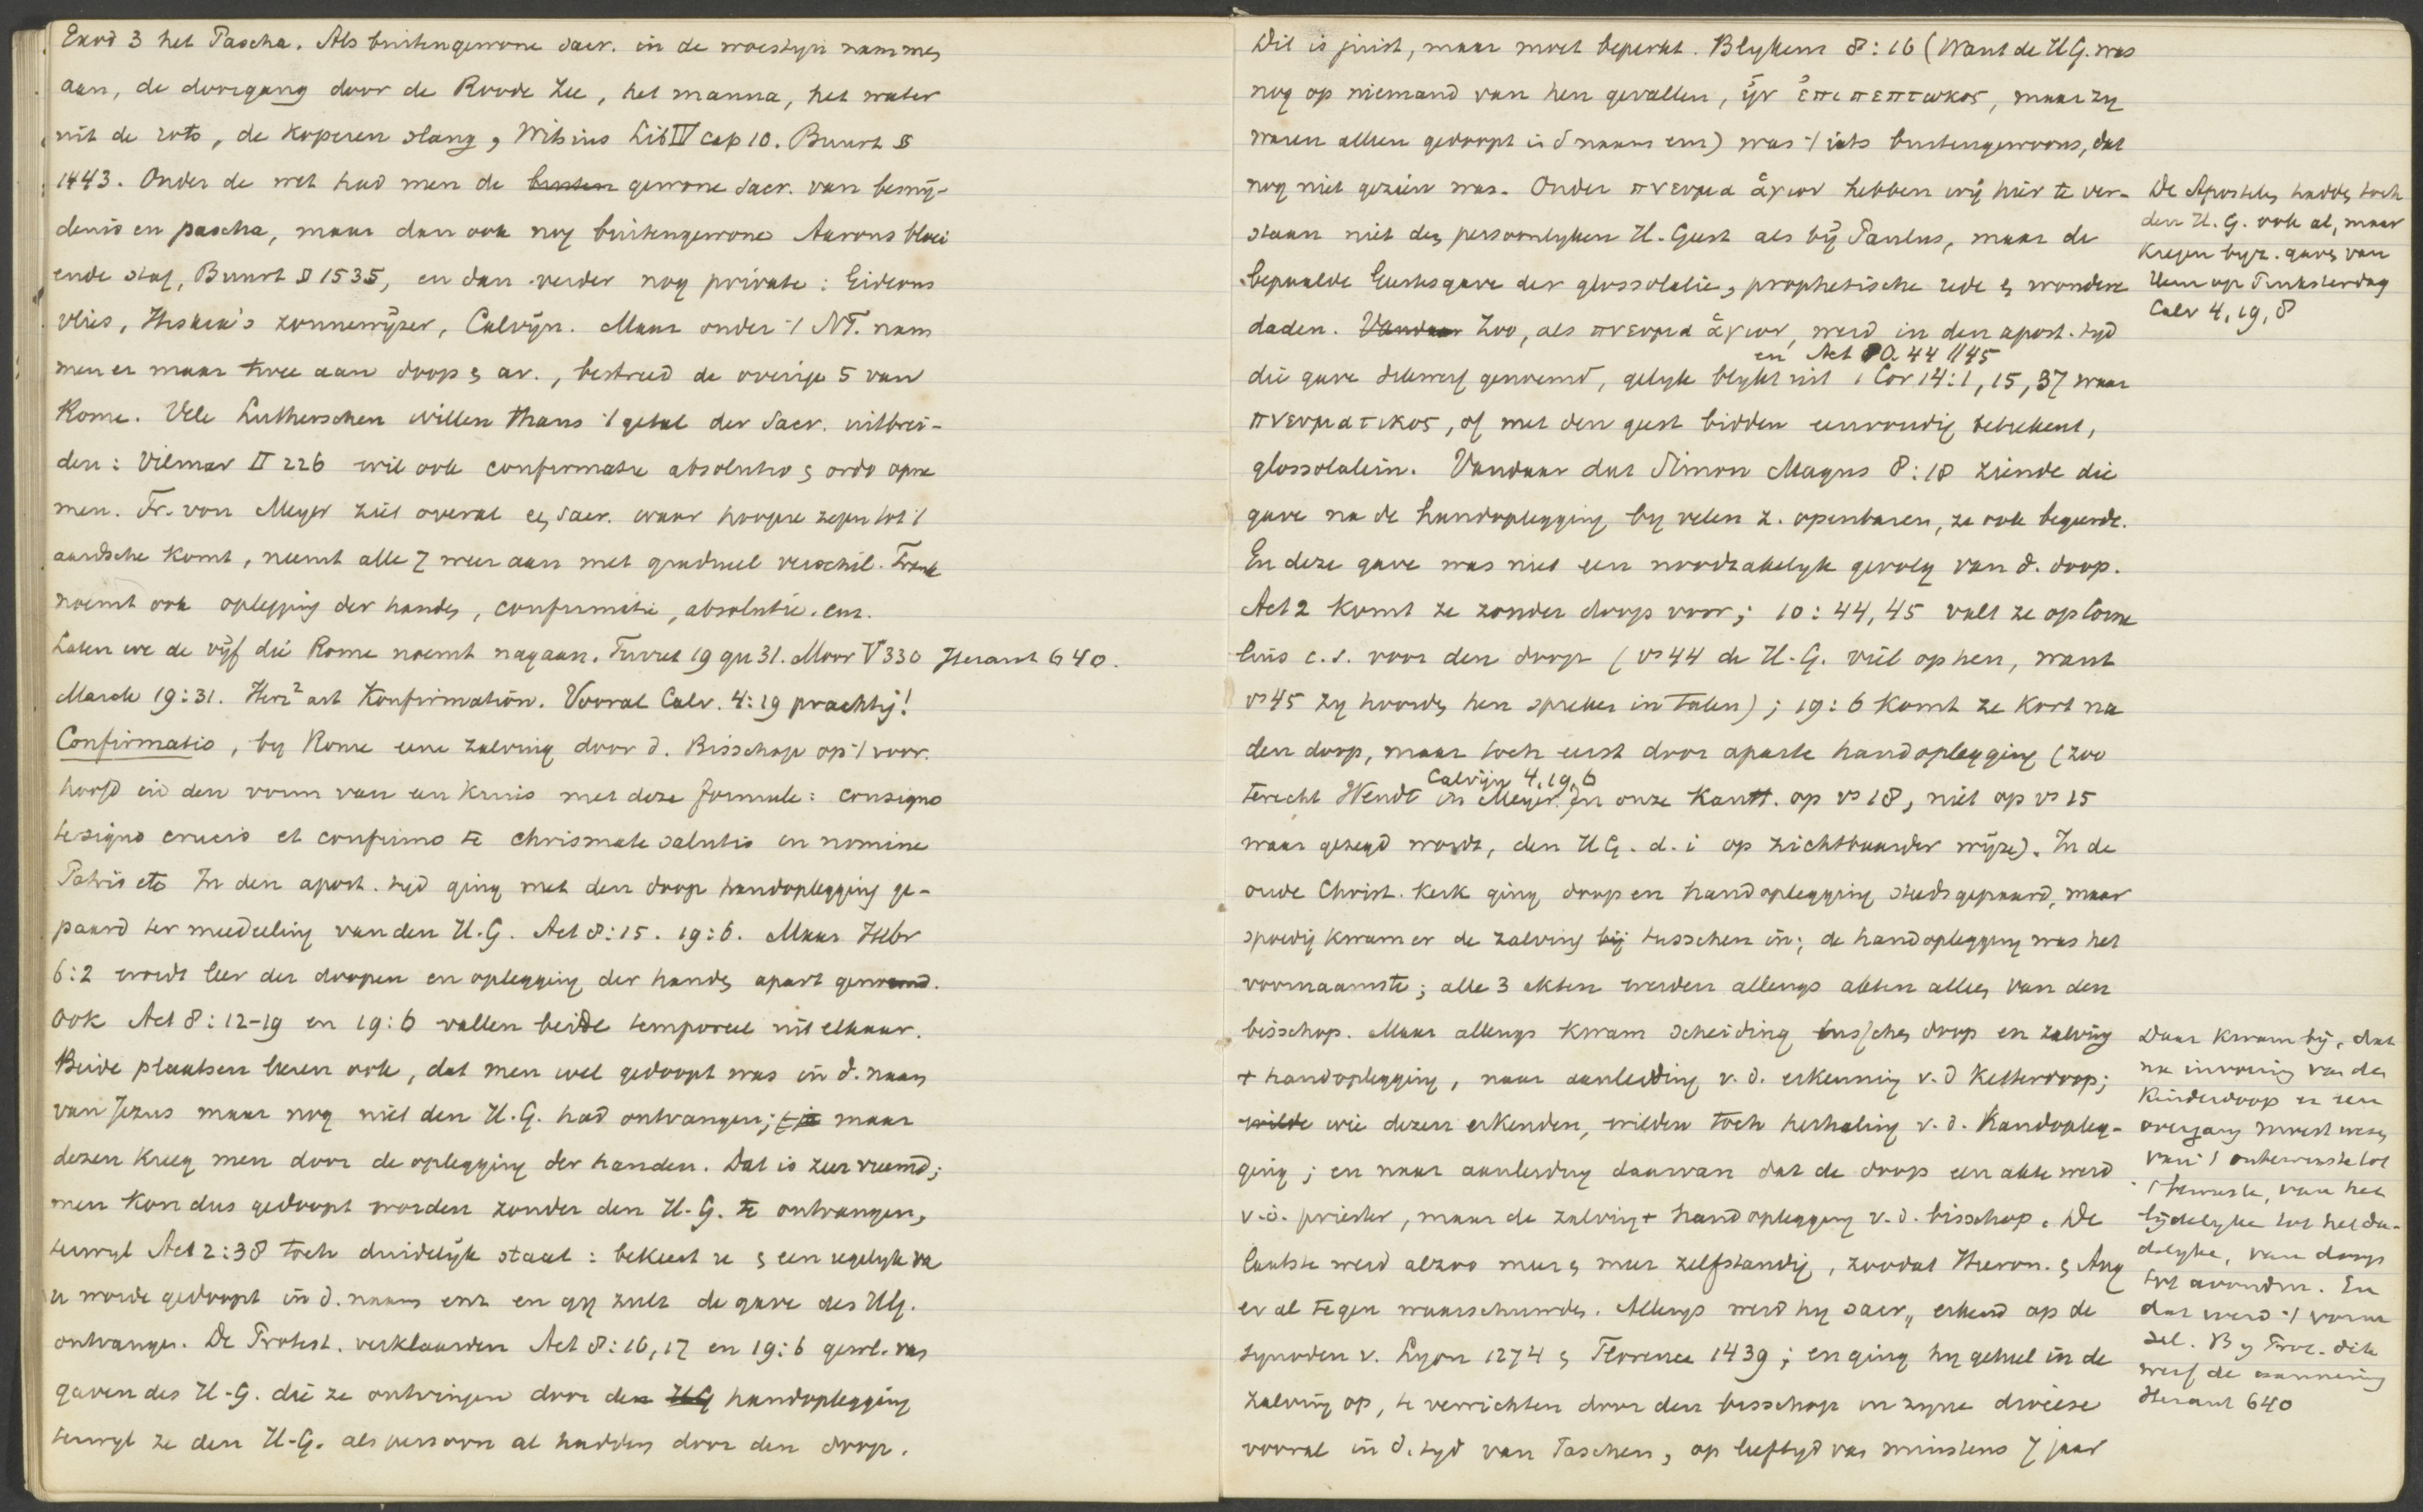 Exod 3 het Pascha. Als buitengewone sacr. in de woestijn nam men
aan, de doorgang door de Roode Zee, het manna, het water
uit de rots, de koperen slang, Witsius Lib IV cap 10. Buurt §
1443. Onder de wet had men de buiten gewone sacr. van besnij-
denis en pascha, maar dan ook nog buitengewone Aarons bloei
ende staf, Buurt § 1535, en dan verder nog private: Gideons
vlies, Hiskia's zonnewijzer, Calvijn. Maar onder 't NT. nam
men er maar twee aan doop & av., bestreed de overige 5 van
Rome. Vele Lutherschen willen thans 't getal der Sacr. uitbrei-
den: Vilmar II 226 wil ook confirmatie absolutio & ordo opne
men. Fr. von Meyer ziet overal een sacr. waar hoogere zegen tot 't
aardsche komt, neemt alle 7 weer aan met gradueel verschil. Frank
noemt ook oplegging der handen, confirmatie, absolutie. enz.
Laten we de vijf die Rome noemt nagaan. Turret 19 qu 31. Moor V 330 Heraut 640.
Marck 19:31. Herz² art Konfirmation. Vooral Calv. 4:19 prachtig!
Confirmatio, by Rome eene zalving door d. Bisschop op 't voor.
hoofd in den vorm van een kruis met deze formule: consigno
te signo crucis et confirmo te chrismate salutis in nomine
Patris etc In den apost. tijd ging met den doop handoplegging ge-
paard ter mededeeling van den H.G. Act 8:15. 19:6. Maar Hebr
6:2 wordt leer der doopen en oplegging der handen apart genoemd.
Ook Act 8:12-19 en 19:6 vallen beide temporeel uit elkaar.
Beide plaatsen leeren ook, dat men wel gedoopt was in d. naam
van Jezus maar nog niet den H.G. had ontvangen; maar
dezen kreeg men door de oplegging der handen. Dat is zeer vreemd;
men kon dus gedoopt worden zonder den H.G. te ontvangen,
terwyl Act 2:38 toch duidelijk staat: bekeert u & een iegelyk va
u worde gedoopt in d. naam enz en gy zult de gave des HG.
ontvangen. De Protest. verklaarden Act 8:16,17 en 19:6 gewl. van
gaven des H.G. die ze ontvingen door den HG handoplegging
terwyl ze den H.G. als persoon al hadden door den doop.
Dit is juist, maar moet beperkt. Blykens 8:16 (Want de H.G. was
nog op niemand van hen gevallen, ἦν ἐπιπεπτωκος, maar zy
waren alleen gedoopt in d naam enz) was 't iets buitengewoons, dat
nog niet gezien was. Onder πνευμα ἁγιον hebben wij hier te ver-
staan niet den persoonlyken H. Geest als bij Paulus, maar de
bepaalde Geestesgave der glossolalie, prophetische rede & wondere
daden. Vandaar Zoo, als πνευμα ἁγιον, werd in den apost. tyd
en Act 10.44 // 45
die gave dikwerf genoemd, gelyk blykt uit 1 Cor 14:1, 15, 37 waar
πνευματικος, of met den geest bidden eenvoudig beteekent,
glossolalein. Vandaar dat Simon Magus 8:18 ziende die
gave na de handoplegging by velen z. openbaren, ze ook begeerde.
En deze gave was niet een noodzakelyk gevolg van d. doop.
Act 2 komt ze zonder doop voor; 10:44,45 valt ze op Corne
lius c.s. voor den doop (vs 44 de H.G. viel op hen, want
vs 45 zy hoorden hen spreken in talen); 19:6 komt ze kort na
den doop, maar toch eerst door aparte handoplegging (zoo
Calvijn 4,19,6
terecht Wendt in Meyer. En onze Kantt. op vs 18, niet op vs 15
waar gezegd wordt, den HG. d.i op zichtbaarder wijze). In de
oude Christ. Kerk ging doop en handoplegging steeds gepaard, maar
spoedig kwam er de zalving bij tusschen in; de handoplegging was het
voornaamste; alle 3 akten werden allengs akten alleen van den
bisschop. Maar allengs kwam scheiding tusschen doop en zalving
+ handoplegging, naar aanleiding v.d. erkenning v.d ketterdoop;
wilde wie dezen erkenden, wilden toch herhaling v.d. handopleg-
ging; en naar aanleiding daarvan dat de doop een akte werd
v.d. priester, maar de zalving + handoplegging v.d. bisschop. De
laatste werd alzoo meer & meer zelfstandig, zoodat Hieron. & Aug
er al tegen waarschuwden. Allengs werd hy sacr., erkend op de
synoden v. Lyon 1274 & Florence 1439; en ging hy geheel in de
zalving op, te verrichten door den bisschop in zyne dioecese
vooral in d. tyd van Paschen, op leeftyd van minstens 7 jaar
De Apostelen hadden toch
den H.G. ook al, maar
kregen byz. gaven van
Hem op Pinksterdag
Calv 4,19,8
Daar kwam bij, dat
na invoering van den
Kinderdoop er een
overgang moest wezen
van 't onbewuste tot
't bewuste, van het
lijdelyke tot het da-
delyke, van doop
tot avondm. En
dat werd 't vorm
sel. By Prot. dik
werf de aanneming
Heraut 640